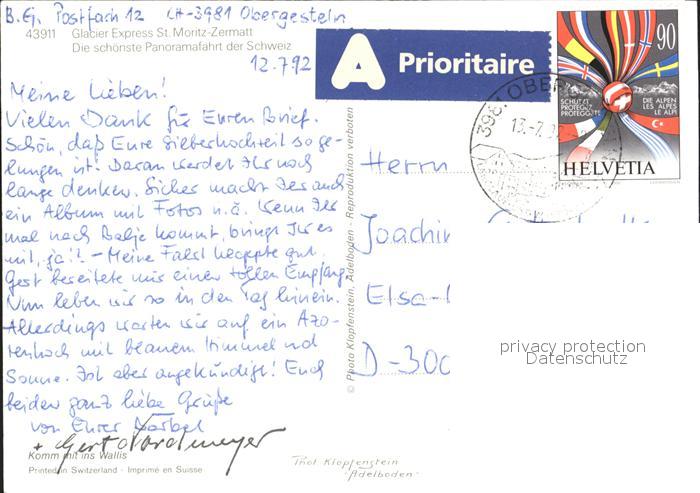 B.G. Postfach 12 CH-3981 Obergesteln
43911 Glacier Express St. Moritz-Zermatt
Die schönste Panoramafahrt der Schweiz
12.7.92
Meine Lieben!
Vielen Dank für Euren Brief.
Schön, daß Eure Silberhochzeit so ge-
lungen ist. Daran werdet Ihr noch
lange denken. Sicher macht Ihr auch
ein Album mit Fotos u.ä. Wenn Ihr
mal nach Balje kommt, bringt Ihr es
mit, ja!! - Meine Fahrt klappte gut.
Gert bereitete mir einen tollen Empfang.
Nun leben wir so in den Tag hinein.
Allerdings warten wir auf ein Azo-
renhoch mit blauem Himmel und
Sonne. Ist aber angekündigt! Euch
beiden ganz liebe Grüße
von Eurer Bärbel
+ Gert Nordmeyer
Komm mit ins Wallis
Printed in Switzerland - Imprimé en Suisse
© Photo Klopfenstein, Adelboden - Reproduktion verboten
Phot Klopfenstein
-Adelboden-
A Prioritaire
3981 OBER
13.-7.92
90
SCHÜTZT
PROTÉGEZ
PROTEGGETE
DIE ALPEN
LES ALPES
LE ALPI
HELVETIA
Herrn
Joachim
Elsa-
D-300
privacy protection
Datenschutz